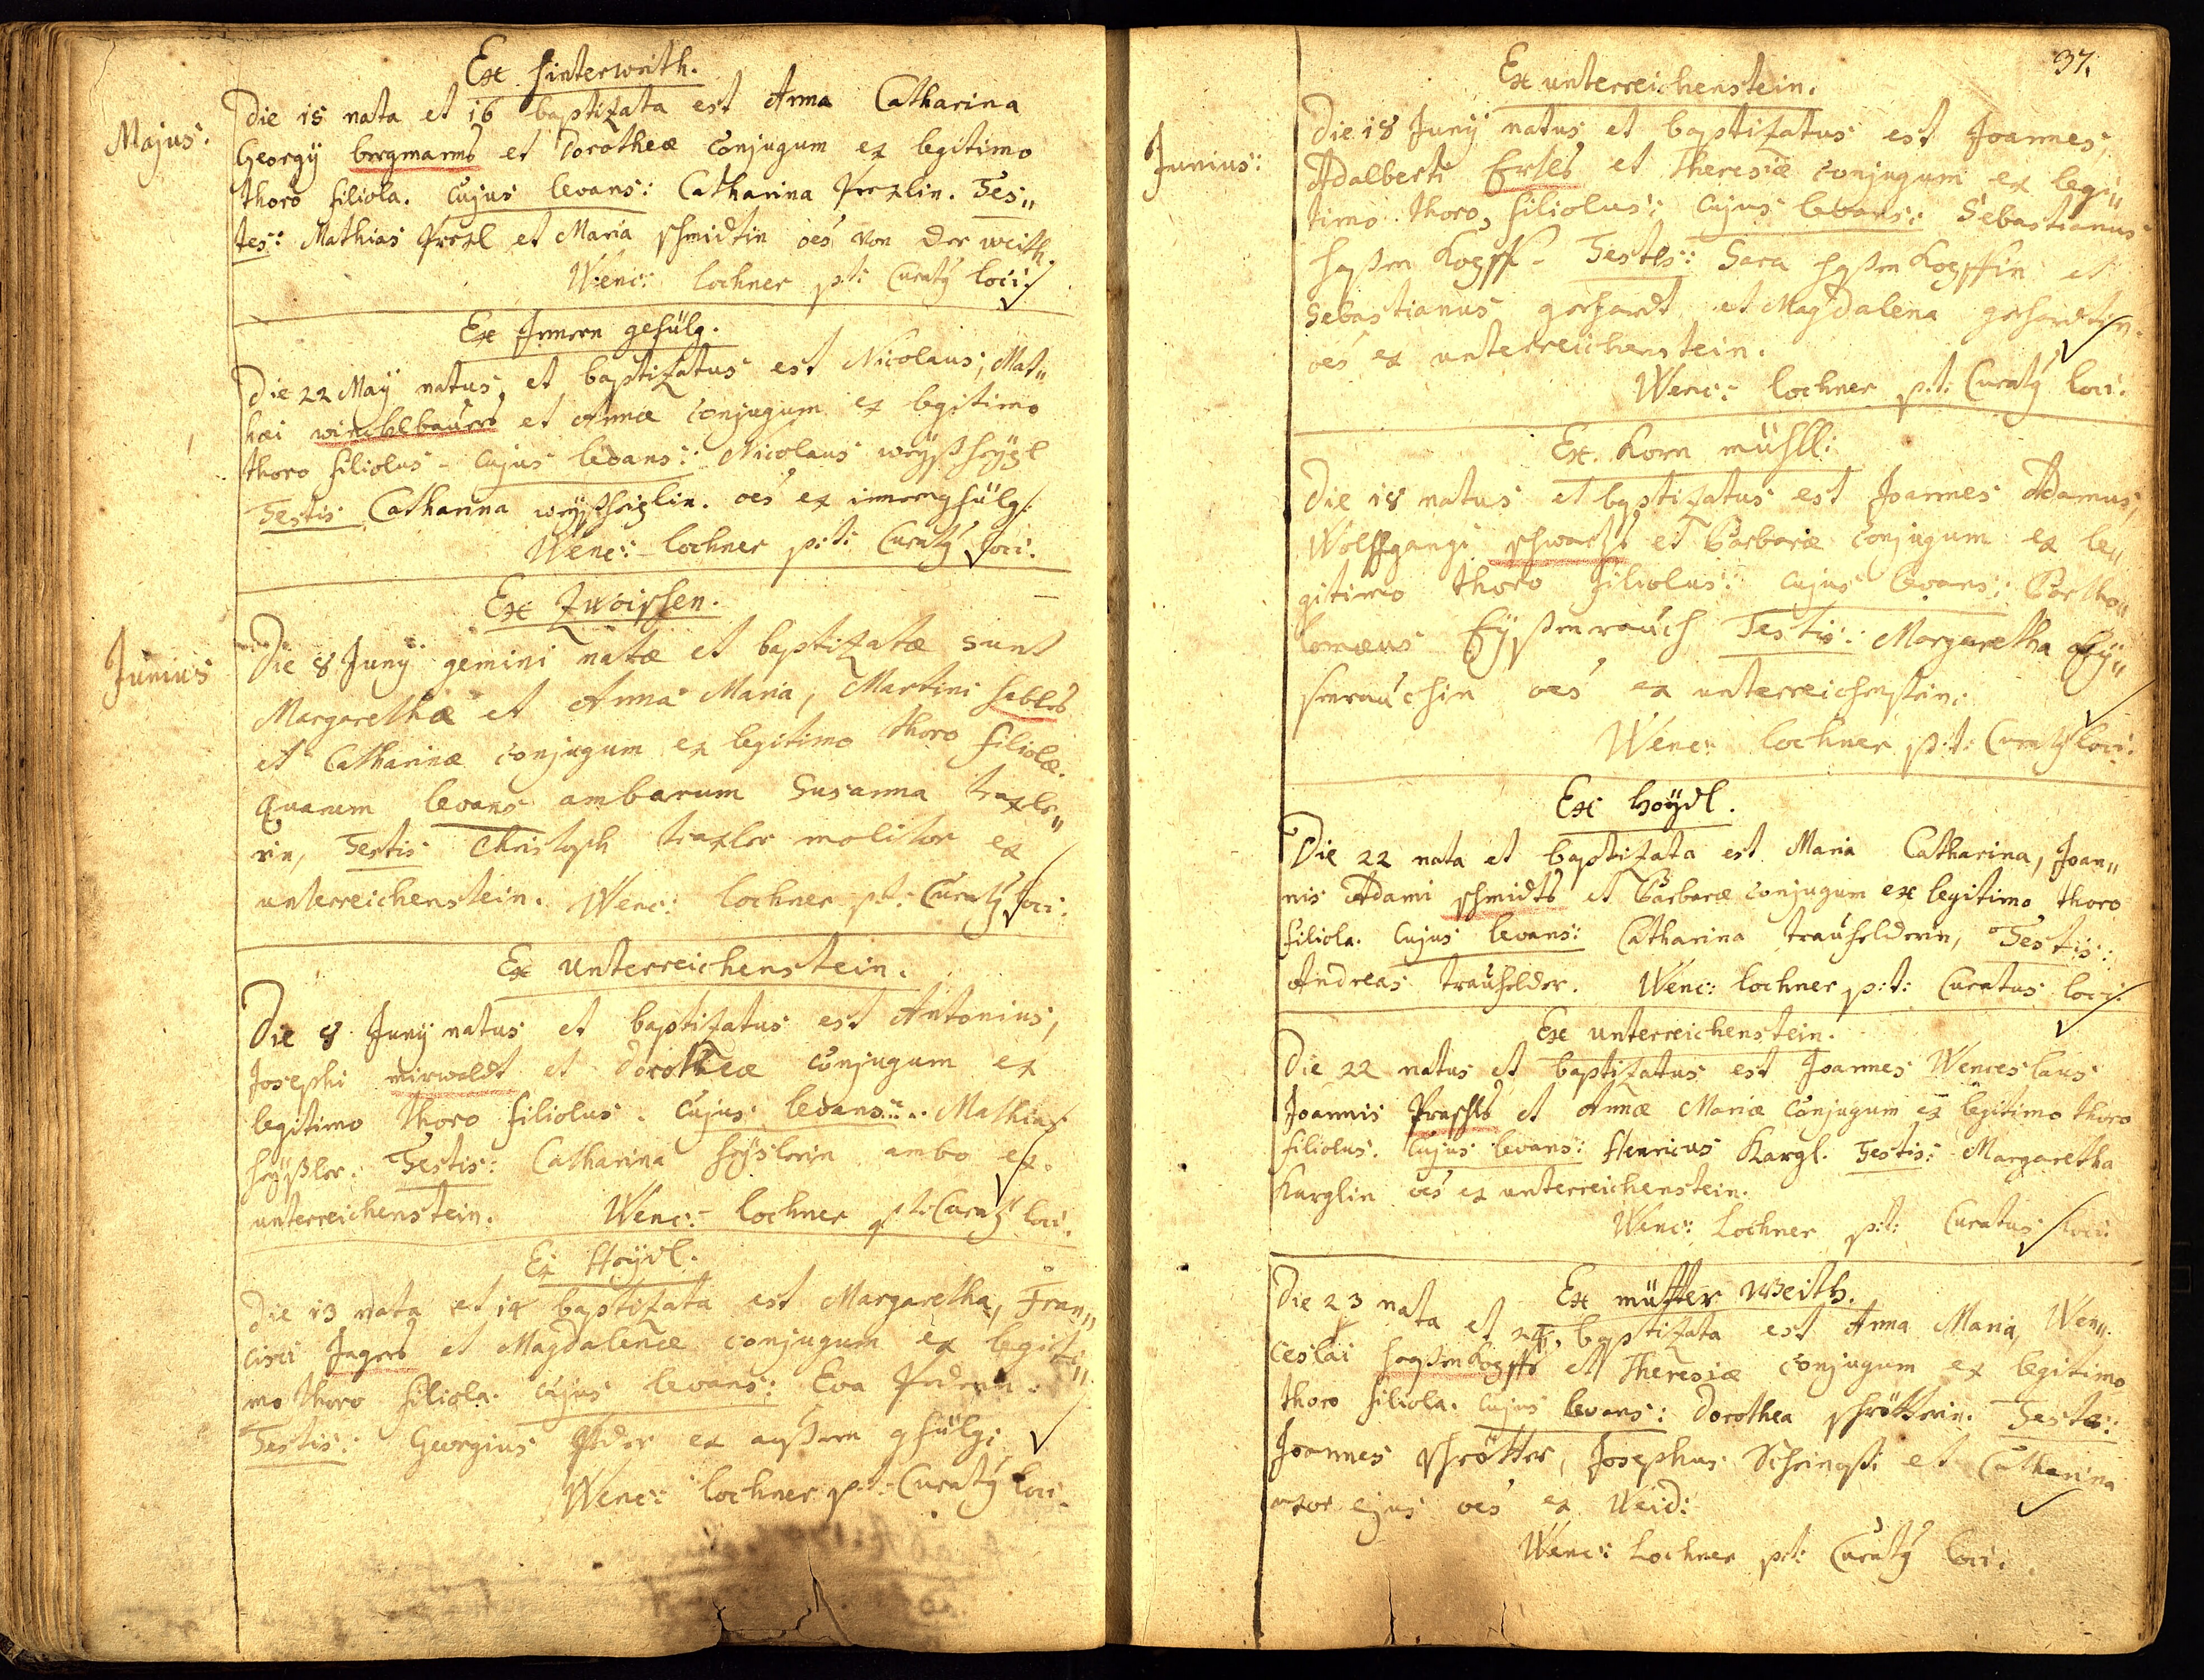 Majus:
Ex hinterweith.
Die 15 nata et 16 baptizata est Anna Catharina
Georgÿ bergmanns et Dorotheæ conjugum ex legitimo
thoro filiola. Cujus levans: Catharina Prexlin. Tes„
tes: Mathias Prexl et Maria schmidtin oes von der weith.
Wenc: lochner p:t: Curatꝯ loci.
Ex Innern gefülg.
Die 22 Maÿ natus, et baptizatus est Nicolaus, Mat„
hæi windlbauers et Annæ conjugum ex legitimo
thoro filiolus - Cujus levans: Nicolaus weÿßheÿgl
Testis Catharina weÿßheiglin. oes ex innerngfülg.
Wenc: lochner p:t: Curatꝯ loci.
Junius
Ex Zwoissen.
Die 8 Junÿ gemini natæ et baptizatæ sunt
Margarethæ et Anna Maria, Martini
et Catharinæ conjugum ex legitimo thoro filiolæ.
Quarum levans ambarum Susanna traxle„
rin, Testis Christoph traxler molitor ex
unterreichenstein. Wenc: lochner p:t: Curatꝯ loci.
Ex unterreichenstein.
Die 8 Junÿ natus et baptizatus est Antonius,
Josephi mirwaldt et Dorotheæ conjugum ex
legitimo thoro filiolus. Cujus levans: Mathias
heÿßler. Testis: Catharina heÿslerin ambo ex
unterreichenstein. Wenc: lochner p:t: Curatꝯ loci.
Ex Heÿdl.
Die 13 nata et 14 baptizata est Margaretha, Fran„
cisci Jagers et Magdalenæ conjugum ex legiti„
mo thoro filiola. Cujus levans: Eva
Testis: Georgius ex außern gfülg:
Wenc: lochner p:t: Curatꝯ loci.
37.
Junius:
Ex unterreichenstein.
Die 18 Junÿ natus et baptizatus est Joannes,
Adalberti Ertls et Theresiæ conjugum ex legi„
timo thoro, filiolus: Cujus levans: Sebastianus
haßenkopff - Testes: Sara haßenkopffin et
Sebastianus gerhardt et Magdalena gerhardtin.
oes ex unterreichenstein.
Wenc: lochner p:t: Curatꝯ loci.
Ex Korn mühll:
Die 18 natus et baptizatus est Joannes Adamus,
Wolffgangi schwartzs et Barbaræ conjugum ex le„
gitimo thoro filiolus: Cujus levans: Bartho„
lomæus Eÿßenrauch Testis: Margaretha Eÿ„
senrauchin oes ex unterreichenstein.
Wenc: lochner p:t: Curatꝯ loci.
Ex Heÿdl.
Die 22 nata et baptizata est Maria Catharina, Joan„
nis Adami schmidts et Barbaræ conjugum ex legitimo thoro
filiola. Cujus levans: Catharina trauhelderin, Testis:
Andreas trauhelder. Wenc: lochner p:t: Curatus loci.
Ex unterreichenstein.
Die 22 natus et baptizatus est Joannes Wenceslaus
Joannis Praschls et Annæ Mariæ conjugum ex legitimo thoro
filiolus. Cujus levans: Henricus Kargl. Testis: Margaretha
Karglin oes ex unterreichenstein.
Wenc: Lochner p:t: Curatus loci.
Ex mütter weith.
Die 23 nata et 24, baptizata est Anna Maria, Wen„
ceslai haßenkopffs et Theresiæ conjugum ex legitimo
thoro filiola. Cujus levans: Dorothea schrötterin. Testes:
Joannes schrötter, Josephus et Catharina
uxor ejus oes ex Weid:
Wenc: Lochner p:t: Curatꝯ loci.